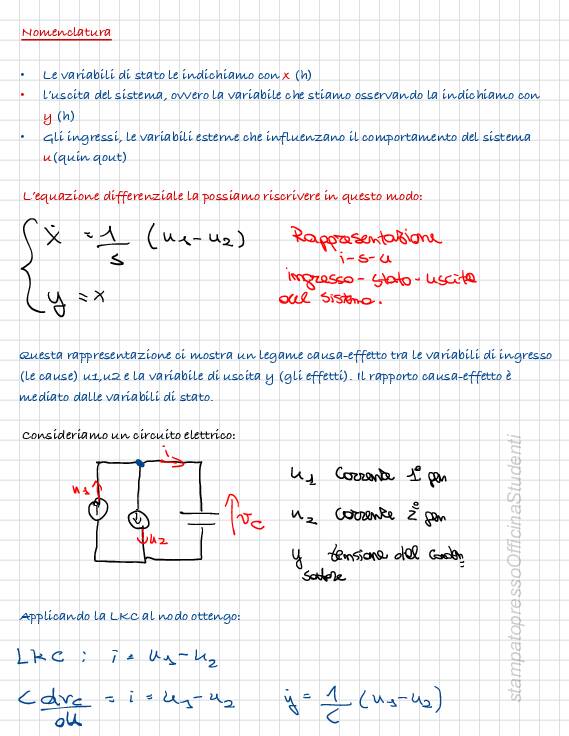 Nomenclatura
• Le variabili di stato le indichiamo con x (h)
• l'uscita del sistema, ovvero la variabile che stiamo osservando la indichiamo con
y (h)
• Gli ingressi, le variabili esterne che influenzano il comportamento del sistema
u(quin qout)
L'equazione differenziale la possiamo riscrivere in questo modo:
ẋ = 1/s (u1-u2)
y = x
Rappresentazione
i-s-u
ingresso-stato-uscita
del sistema.
Questa rappresentazione ci mostra un legame causa-effetto tra le variabili di ingresso
(le cause) u1,u2 e la variabile di uscita y (gli effetti). Il rapporto causa-effetto è
mediato dalle variabili di stato.
Consideriamo un circuito elettrico:
i
u1
u2
vc
u1 corrente 1° gen
u2 corrente 2° gen
y tensione del conden
satore
Applicando la LKC al nodo ottengo:
LKC : i = u1-u2
C dvc/dt = i = u1-u2 ẏ = 1/C (u1-u2)
stampatopressoOfficinaStudenti